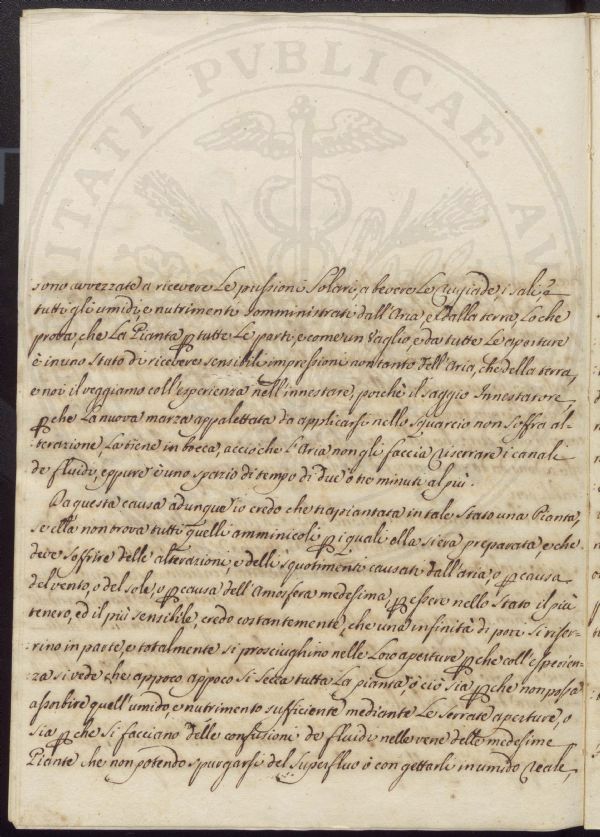 ITATI PVBLICAE AV
sono avvezzate a ricevere le pussioni Solari, a bevere le Rugiade, i sali, e
tutti gli umidi, e nutrimenti somministrati dall'Aria, e dalla terra, lo che
prova, che la Pianta p tutte le parti, e come un Vaglio, e da tutte le aperture
è in uno Stato di ricevere sensibili impressioni non tanto dell'Aria, che della terra,
e noi il veggiamo coll'esperienza nell'innestare, poichè il saggio Innestarore,
p che la nuova marza appalettata da applicarsi nello squarcio non soffra al-
-terazione, la tiene in bocca, acciò che l'Aria non gli faccia riserrare i canali
de fluidi, eppure è uno spazio di tempo di due o tre minuti al più.
Da questa causa adunque io credo che ripiantata in tale Stato una Pianta,
se ella non trova tutti quelli amminicoli p i quali ella si era preparata, e che
deve soffrire delle alterazioni, e delli squotimenti causati dall'aria, o p causa
del vento, o del sole, o p causa dell'Amosfera medesima, p essere nello Stato il più
tenero, ed il più sensibile, credo costantemente, che una infinità di pori si riser-
-rino in parte, e totalmente si prosciughino nelle loro aperture p che coll'esperien-
-za si vede che appoco appoco si secca tutta la pianta, o ciò sia p che non possa
assorbire quell'umido, e nutrimento sufficiente mediante le serrate aperture, o
sia p che si facciano delle confusioni de fluidi nelle vene delle medesime
Piante che non potendo spurgarsi del superfluo o con gettarli in umido reale,